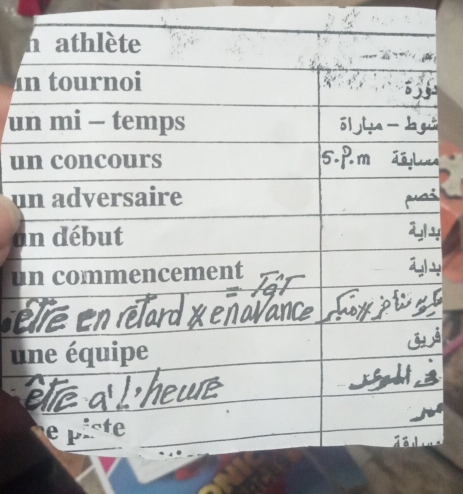 n athlète
un tournoi دورة
un mi – temps شوط – مباراة
un concours S.P.m مسابقة
un adversaire خصم
un début بداية
un commencement بداية
= Tôt
être en retard x en avance
une équipe فريق
être à l'heure فى الموعد
e piste ممر